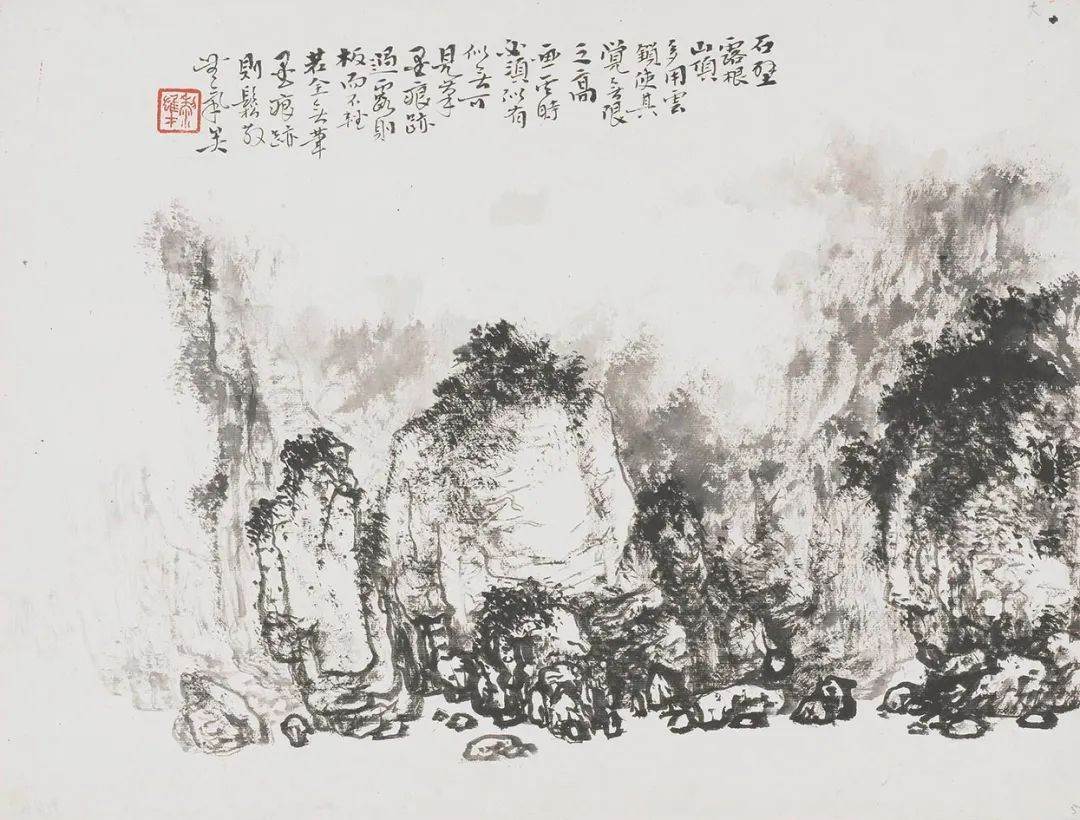 石壁
露根
山頂
多用雲
鎖使其
覺无限
之高
画雲時
必須似有
似无可
見筆
墨痕跡
過露則
板而不輕
若全无筆
墨痕跡
則鬆散
無氣矣
黎雄才